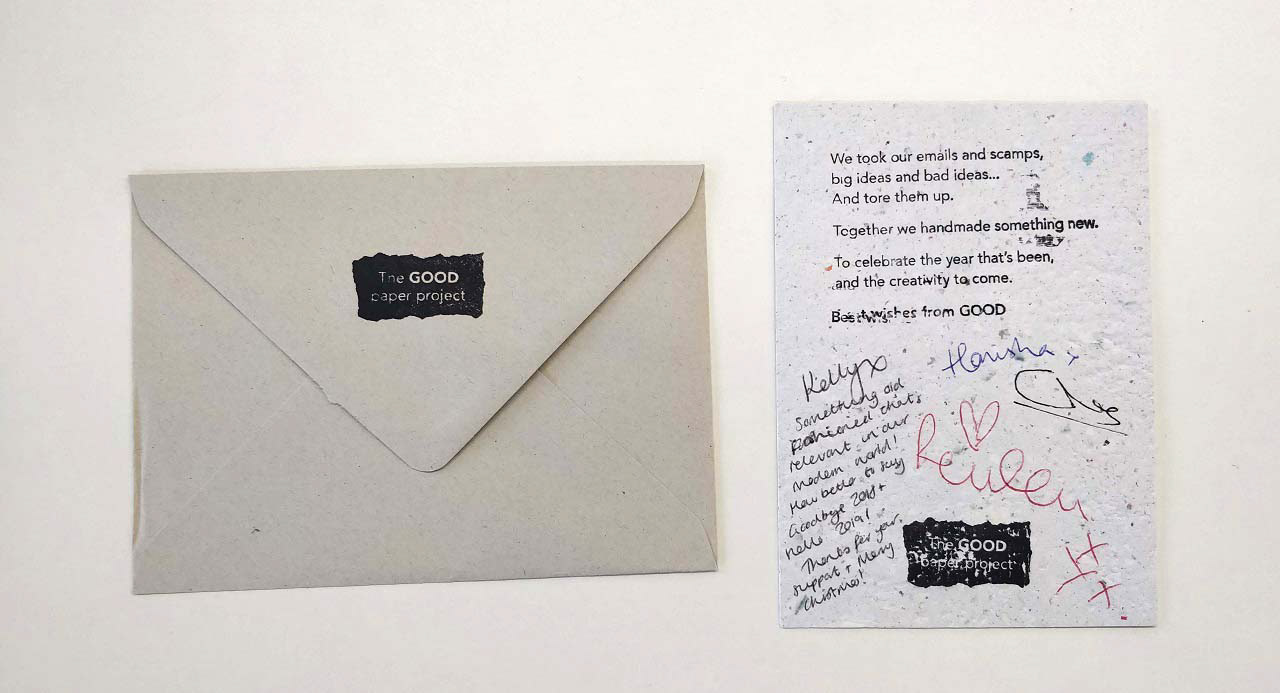 The GOOD
paper project
We took our emails and scamps,
big ideas and bad ideas...
And tore them up.
Together we handmade something new.
To celebrate the year that's been,
and the creativity to come.
Best wishes from GOOD
Kelly x
Something old
fashioned that's
relevant in our
modern world!
How better to say
Goodbye 2018 +
hello 2019!
Thanks for your
support + Merry
Christmas!
Harisha x
Reuben
The GOOD
paper project